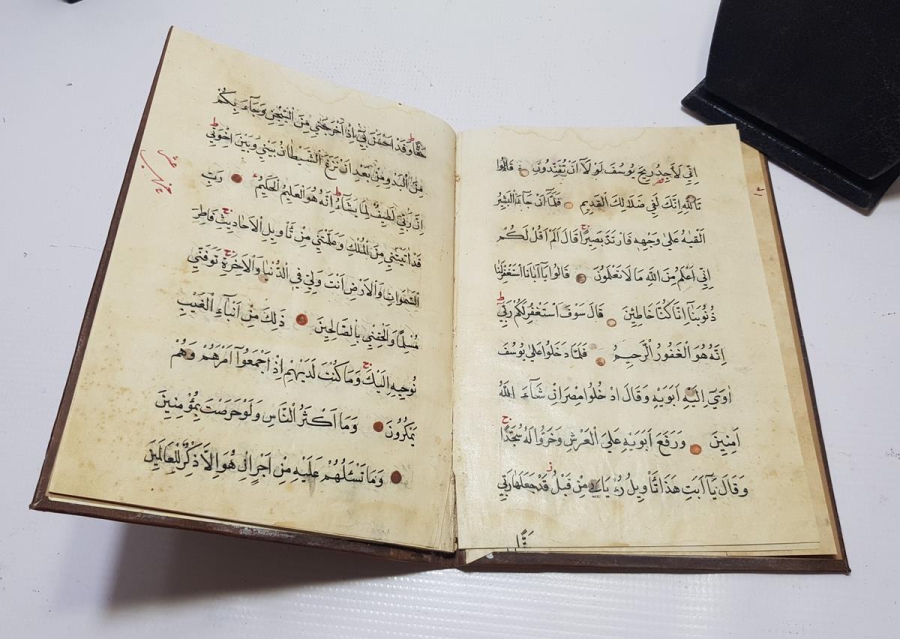 اِنّي لَاَجِدُ رِيحَ يُوسُفَ لَوْلَآ اَنْ تُفَنِّدُونِ قَالُوا
تَاللّٰهِ اِنَّكَ لَفِي ضَلَالِكَ الْقَدِيمِ فَلَمَّآ اَنْ جَآءَ الْبَشِيرُ
اَلْقٰيهُ عَلٰى وَجْهِهِ فَارْتَدَّ بَصِيرًا قَالَ اَلَمْ اَقُلْ لَكُمْ
اِنّي اَعْلَمُ مِنَ اللّٰهِ مَا لَا تَعْلَمُونَ قَالُوا يَآ اَبَانَا اسْتَغْفِرْ لَنَا
ذُنُوبَنَآ اِنَّا كُنَّا خَاطِئِينَ قَالَ سَوْفَ اَسْتَغْفِرُ لَكُمْ رَبّي
اِنَّهُ هُوَ الْغَفُورُ الرَّحِيمُ فَلَمَّا دَخَلُوا عَلٰى يُوسُفَ
اٰوٰٓى اِلَيْهِ اَبَوَيْهِ وَقَالَ ادْخُلُوا مِصْرَ اِنْ شَآءَ اللّٰهُ
اٰمِنِينَ وَرَفَعَ اَبَوَيْهِ عَلَى الْعَرْشِ وَخَرُّوا لَهُ سُجَّدًا
وَقَالَ يَآ اَبَتِ هٰذَا تَأْوِيلُ رُءْيَايَ مِنْ قَبْلُ قَدْ جَعَلَهَا رَبّي
حَقًّا
حَقًّا وَقَدْ اَحْسَنَ بِي اِذْ اَخْرَجَنِي مِنَ السِّجْنِ وَجَآءَ بِكُمْ
مِنَ الْبَدْوِ مِنْ بَعْدِ اَنْ نَزَغَ الشَّيْطَانُ بَيْنِي وَبَيْنَ اِخْوَتِي
اِنَّ رَبّي لَطِيفٌ لِمَا يَشَآءُ اِنَّهُ هُوَ الْعَلِيمُ الْحَكِيمُ رَبِّ
قَدْ اٰتَيْتَنِي مِنَ الْمُلْكِ وَعَلَّمْتَنِي مِنْ تَأْوِيلِ الْاَحَادِيثِ فَاطِرَ
السَّمٰوَاتِ وَالْاَرْضِ اَنْتَ وَلِيِّي فِي الدُّنْيَا وَالْاٰخِرَةِ تَوَفَّنِي
مُسْلِمًا وَاَلْحِقْنِي بِالصَّالِحِينَ ذٰلِكَ مِنْ اَنْبَآءِ الْغَيْبِ
نُوحِيهِ اِلَيْكَ وَمَا كُنْتَ لَدَيْهِمْ اِذْ اَجْمَعُوآ اَمْرَهُمْ وَهُمْ
يَمْكُرُونَ وَمَآ اَكْثَرُ النَّاسِ وَلَوْ حَرَصْتَ بِمُؤْمِنِينَ
وَمَا تَسْئَلُهُمْ عَلَيْهِ مِنْ اَجْرٍ اِنْ هُوَ اِلَّا ذِكْرٌ لِلْعَالَمِينَ